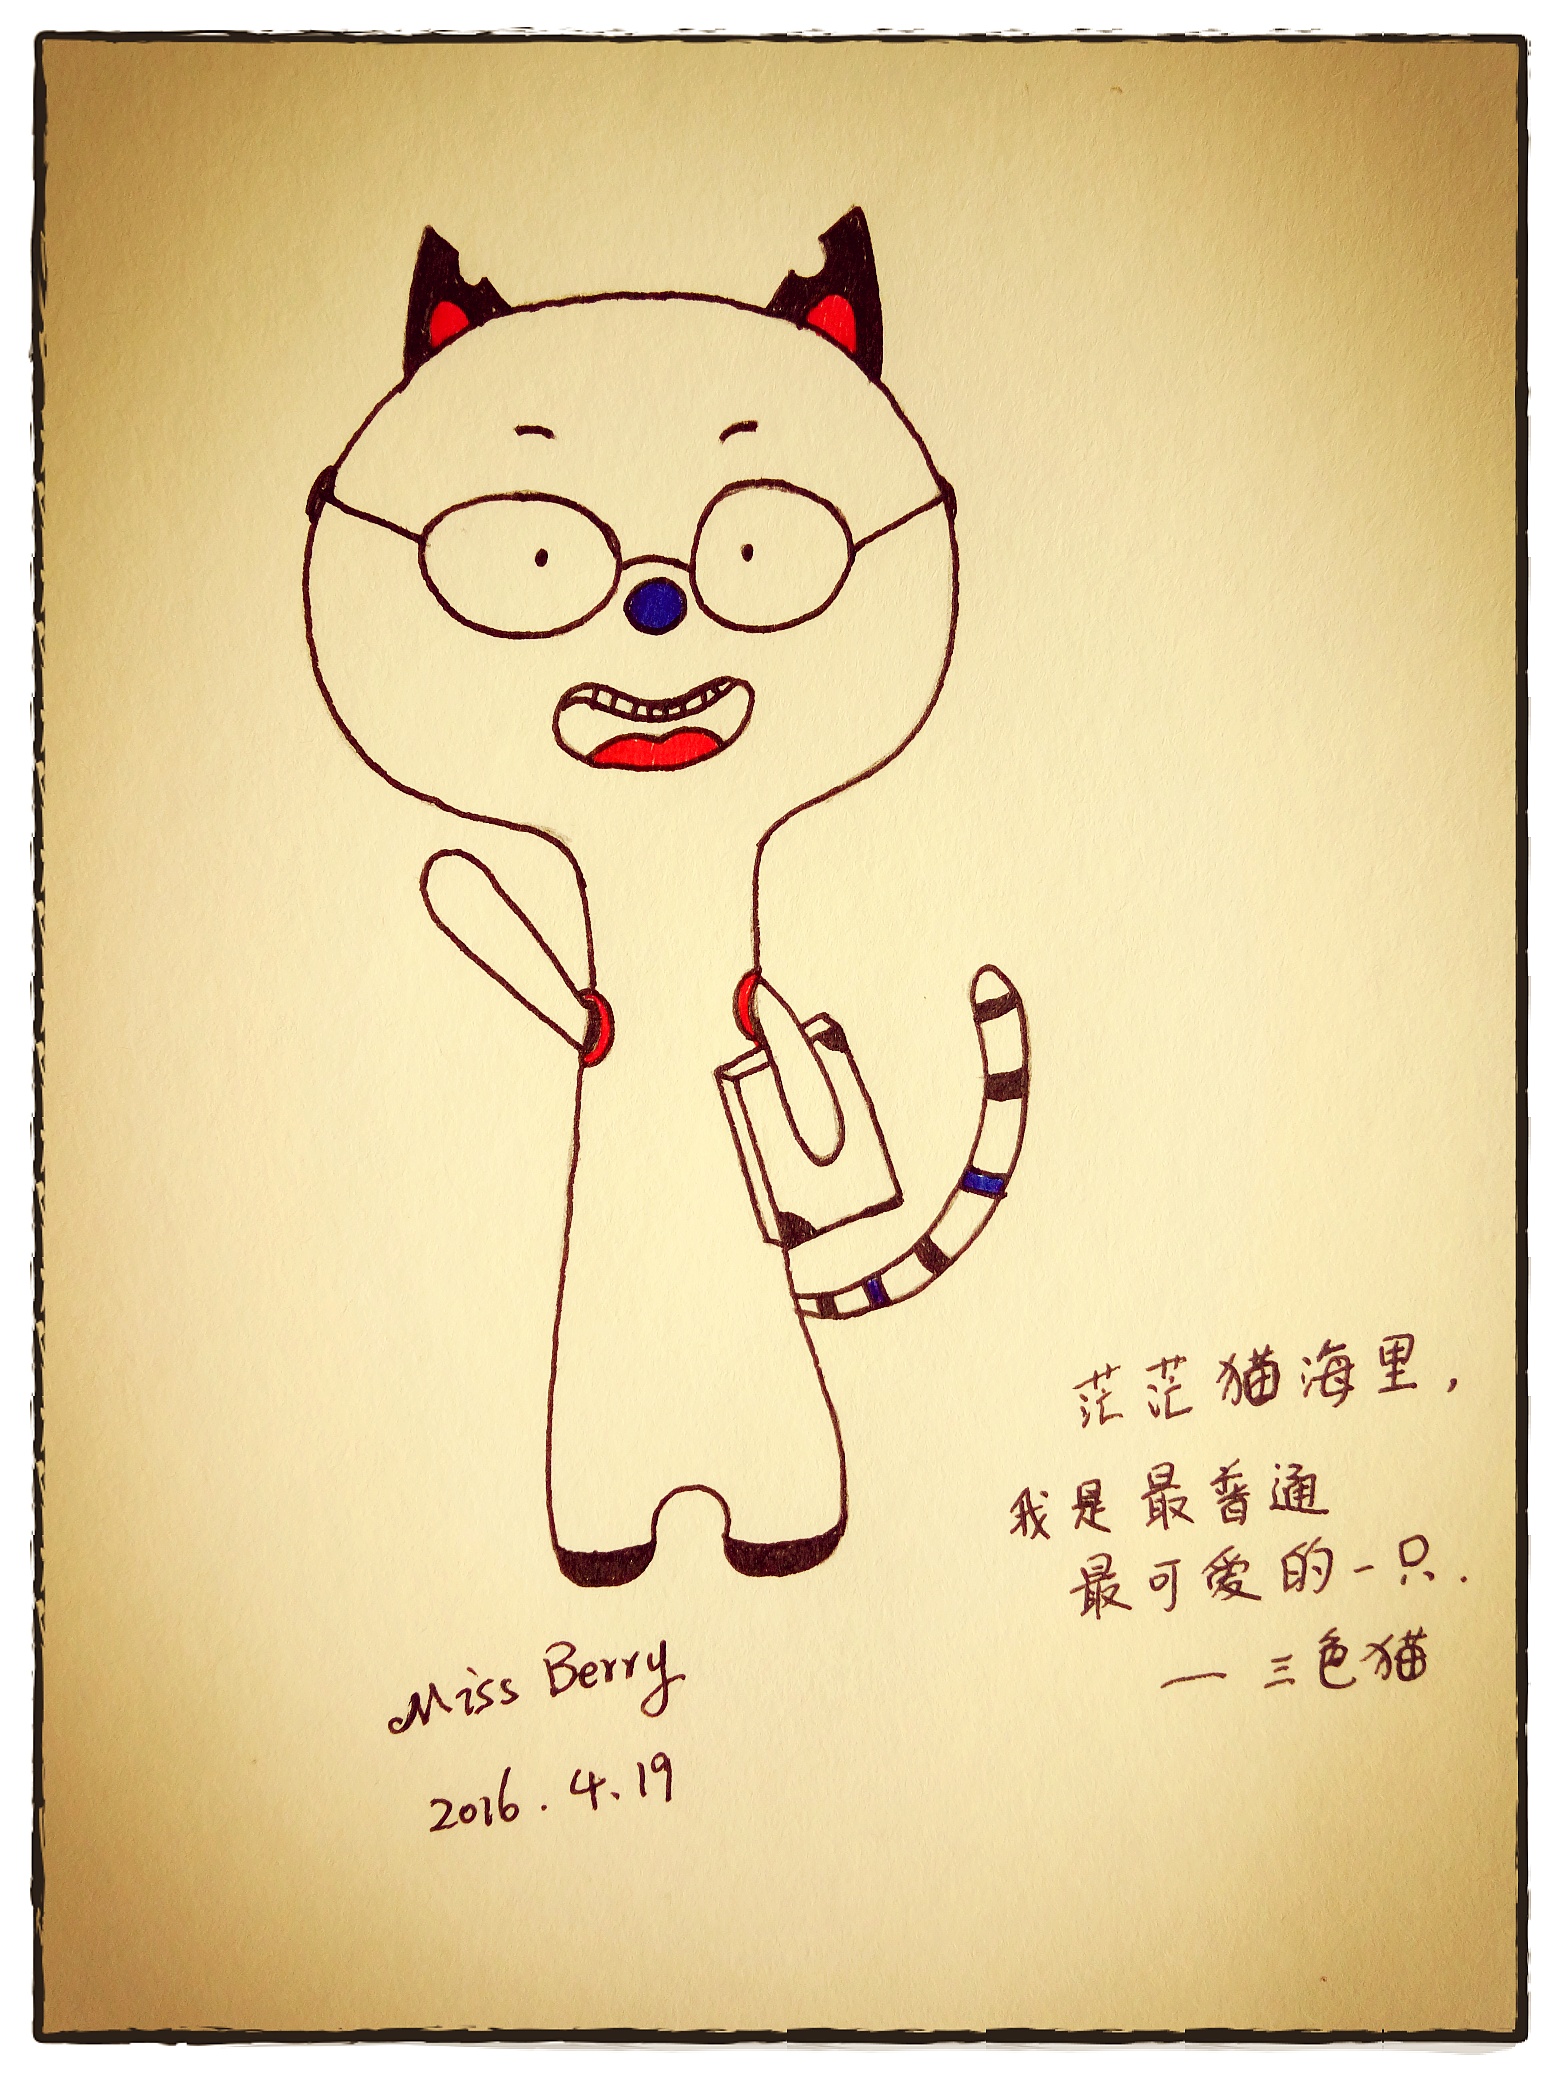 茫茫猫海里，
我是最普通
最可爱的一只.
— 三色猫
Miss Berry
2016.4.19